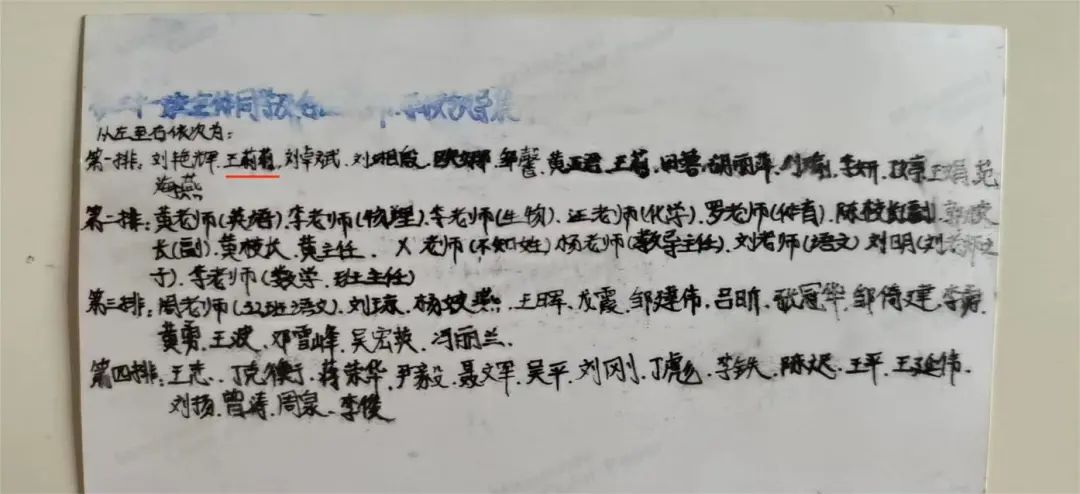 班全体同学及
从左至右依次为:
第一排:刘艳辉.王莉莉.刘卓斌.刘 邹馨.黄 王莉.田 胡丽萍. 李妍. 王娟.苑
海燕
第二排:黄老师(英语).李老师(物理).李老师(生物).汪老师(化学).罗老师(体育).陈校长(副).郭校
长(副).黄校长.黄主任.X老师(不知姓)杨老师(教导主任).刘老师(语文)刘明(刘老师之
子).李老师(数学.班主任)
第三排:周老师(32班语文).刘琼.杨 王晖.龙霞.邹建伟.吕昕.张冠华.邹倚建.李勇.
黄勇.王波.邓雪峰.吴宏英.冯丽兰.
第四排:王志.丁克衡.蒋荣华.尹毅.聂文军.吴平.刘刚.丁彪.李铁.陈迟.王平.王延伟.
刘扬.曾涛.周泉.李俊